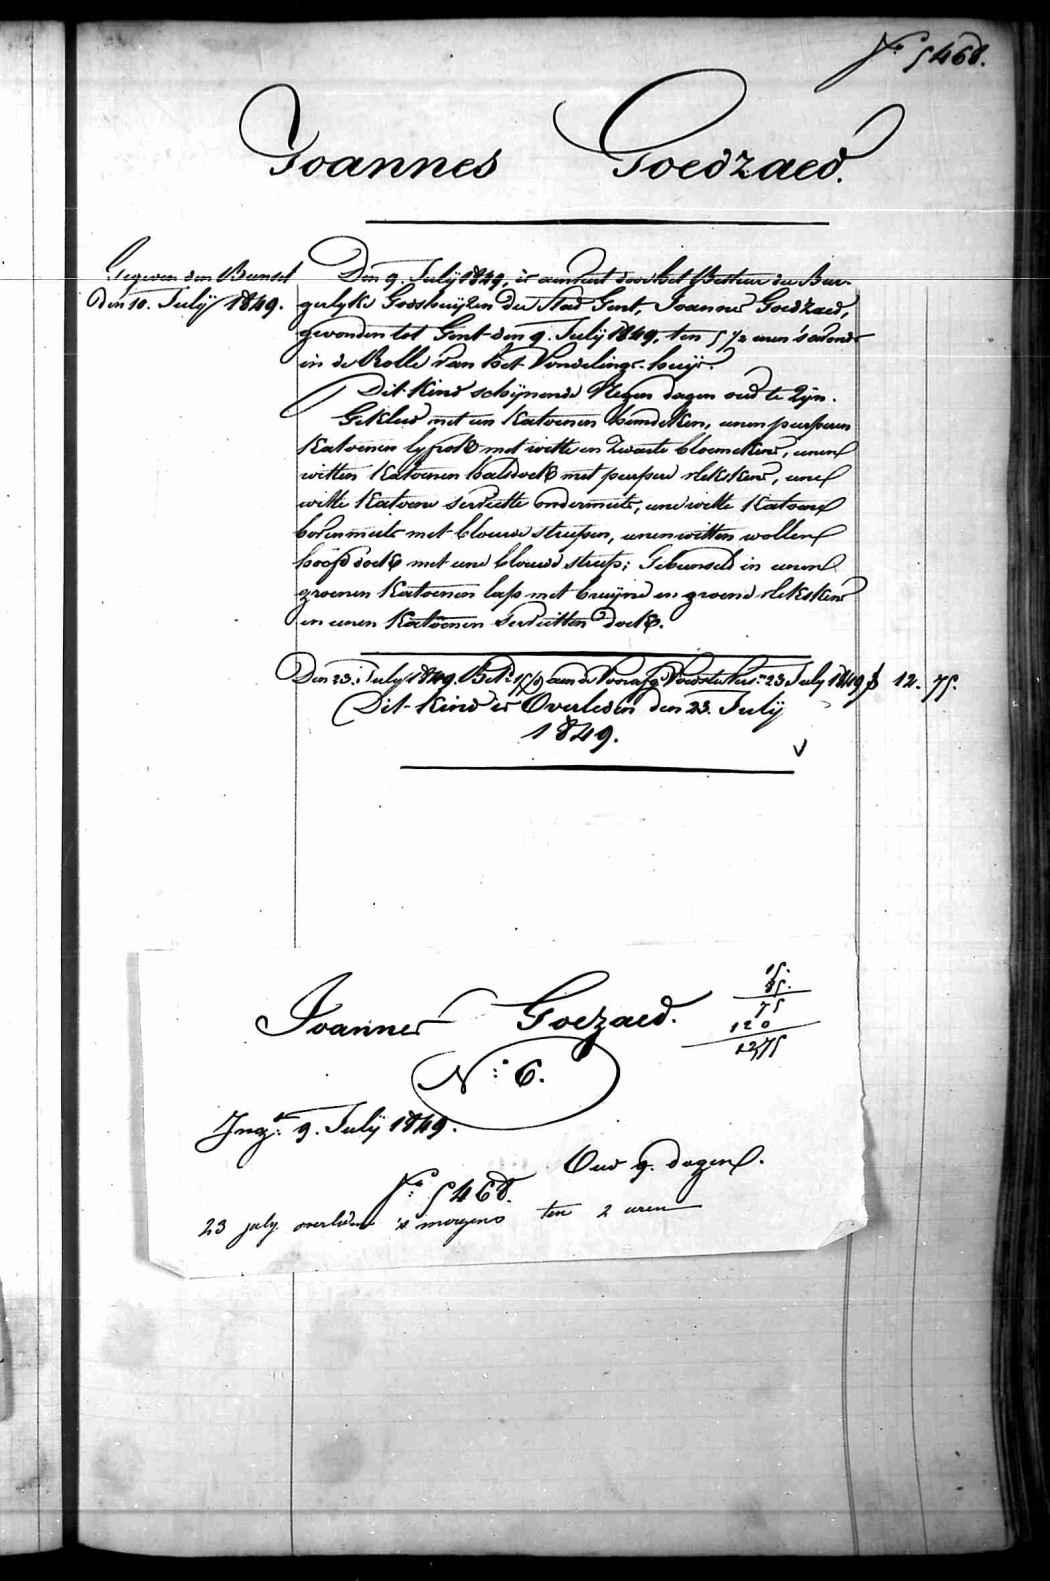 N.° 5468.
Joannes Goedzaed.
Gegeven den Bunsel
den 10. Julij 1849.
Den 9. Julij 1849, is aenveirt door het Bestuur der Bur-
gerlyke Godshuijzen der Stad Gent, Joannes Goedzaed,
gevonden tot Gent den 9. Julij 1849, ten 5 1/2 uren 's avonds
in de Rolle van het Vondelings-huijs.
Dit Kind schijnende Negen dagen oud te Zijn.
Gekleed met een Katoenen hemdeken, eenen purperen
Katoenen lyfrok met witte en Zwarte bloemekens, eenen
witten Katoenen halsdoek met purpere vlekskens, eene
witte Katoene serviette ondermuts, eene witte Katoene
bovenmuts met blauwe streepen, eenen witten wollen
hoofddoek met eene blauwe streep; Gebunseld in eenen
groenen Katoenen lap met bruijne en groene vlekskens
en eenen Katoenen servietten doek.
Den 23. July 1849. Bet. 15/ aen de 23 July 1849 12. 75.
Dit Kind is Overleden den 23. Julij
1849.
15.
85.
75
120
1275
Joannes Goezaed.
N.° 6.
Ing.en 9. Julij 1849.
Oud 9. dagen.
N.° 5468.
23 july overleden 's morgens ten 2 uren